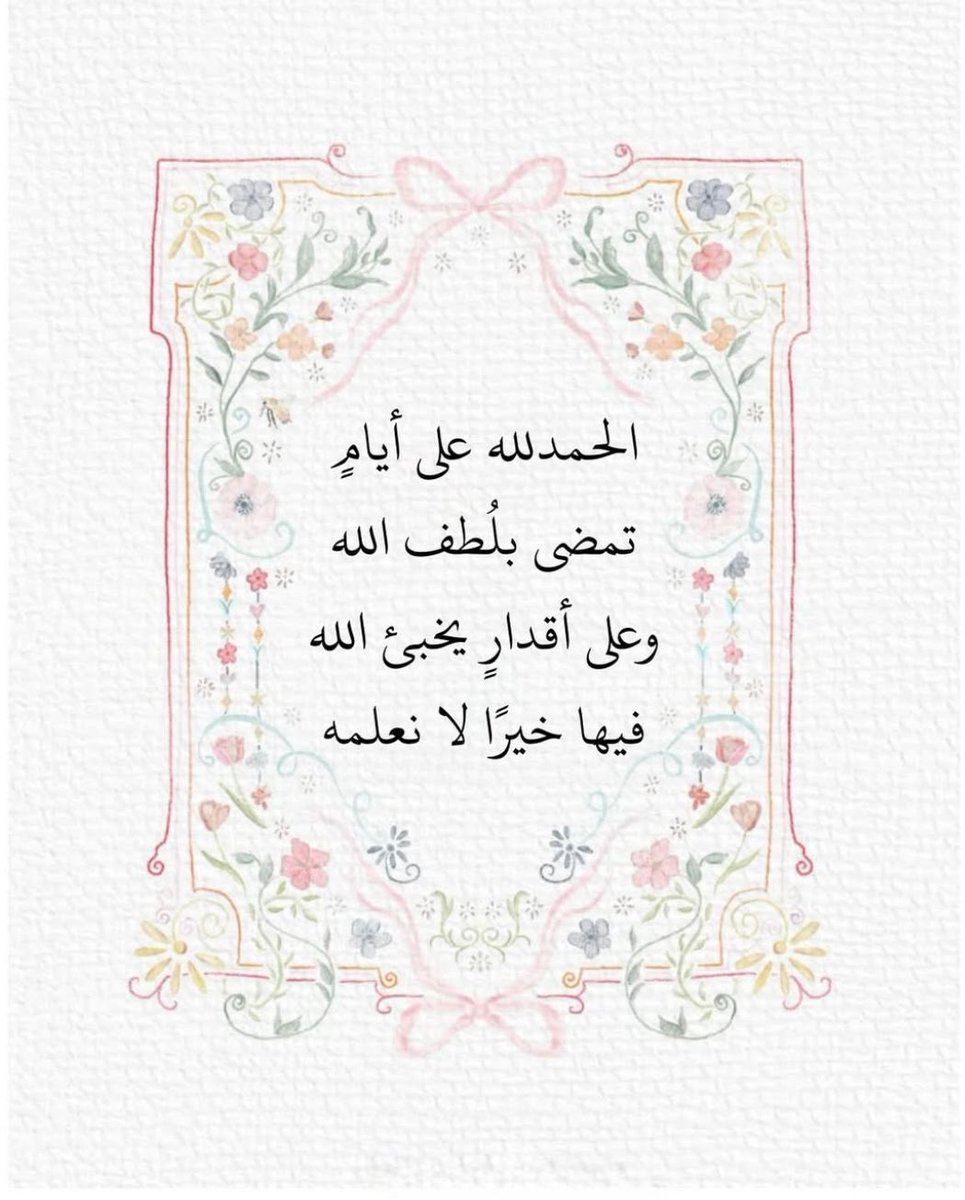 الحمدلله على أيامٍ
تمضى بلُطف الله
وعلى أقدارٍ يخبئ الله
فيها خيرًا لا نعلمه